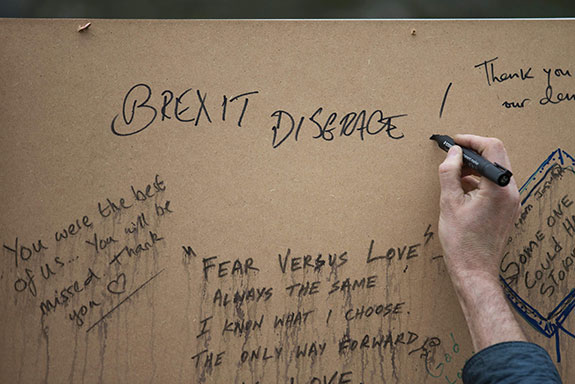 BREXIT DISGRACE !
Thank you
our dem
You were the best
of us... You will be
missed. Thank
you ♡
"FEAR VERSUS LOVE"
ALWAYS THE SAME
I KNOW WHAT I CHOOSE.
THE ONLY WAY FORWARD
LOVE
SOME ONE
COULD H
STO
God